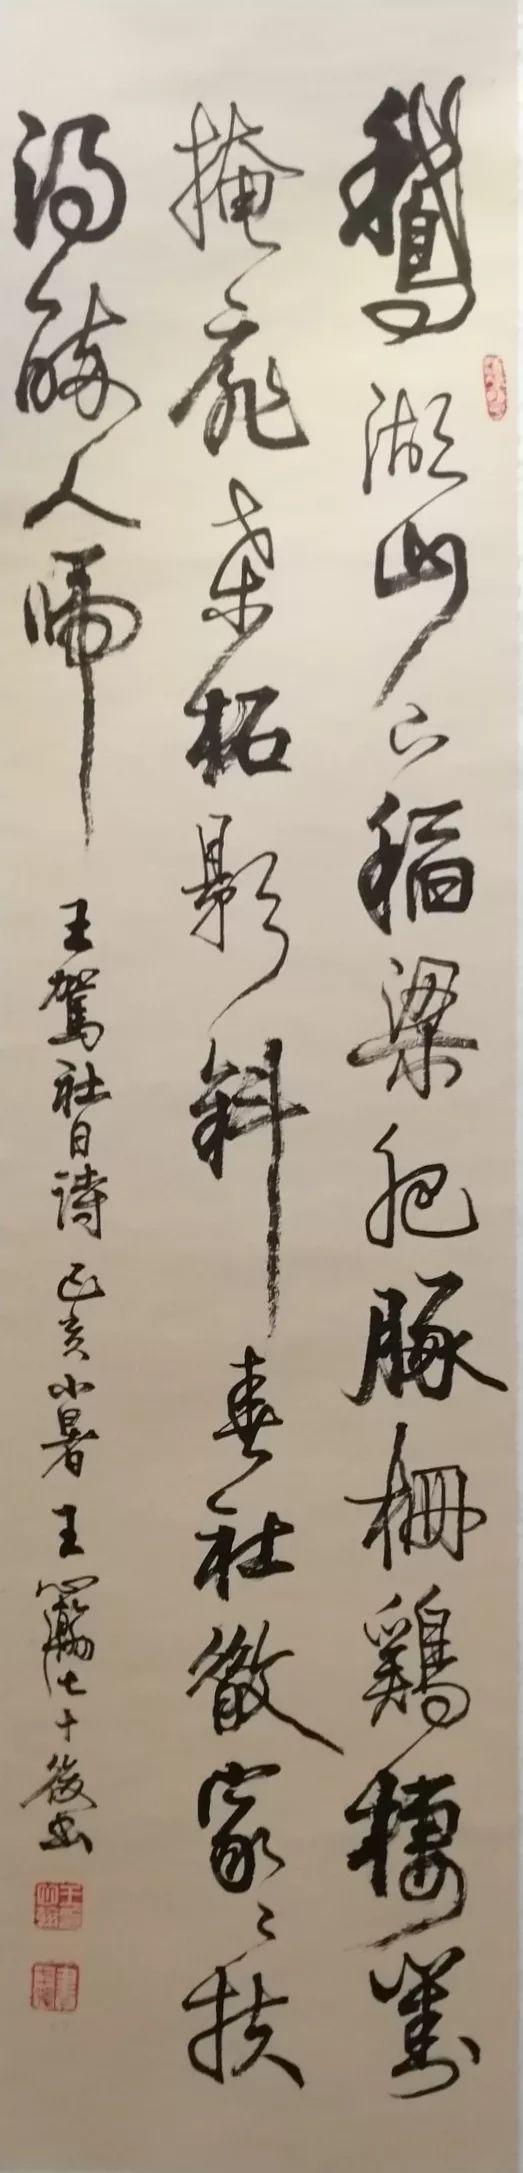 鵝湖山下稻梁肥豚柵鷄棲對
掩扉桑柘影斜春社散家〻扶
得醉人歸 王駕社日詩 己亥小暑 王心 七十後書